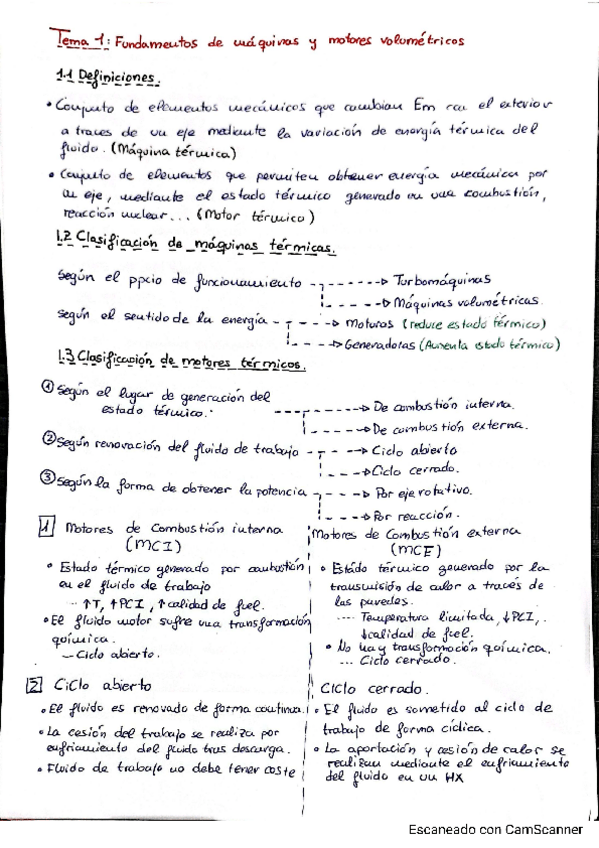 Tema 1: Fundamentos de máquinas y motores volumétricos
1.1 Definiciones.
• Conjunto de elementos mecánicos que cambian Em con el exterior
a traves de un eje mediante la variación de energía térmica del
fluido. (Máquina térmica)
• Conjunto de elementos que permiten obtener energía mecánica por
un eje, mediante el estado térmico generado en una combustión,
reacción nuclear... (Motor térmico)
1.2 Clasificación de máquinas térmicas.
Según el ppcio de funcionamiento → Turbomáquinas
→ Máquinas volumétricas.
Según el sentido de la energía → Motoras (reduce estado térmico)
→ Generadoras (Aumenta estado térmico)
1.3 Clasificación de motores térmicos.
① Según el lugar de generación del
estado térmico. → De combustión interna.
→ De combustión externa.
② Según renovación del fluido de trabajo → Ciclo abierto
→ Ciclo cerrado.
③ Según la forma de obtener la potencia → Por eje rotativo.
→ Por reacción.
1 Motores de Combustión interna
(MCI)
• Estado térmico generado por combustión
en el fluido de trabajo
- ↑T, ↑PCI, ↑calidad de fuel.
• El fluido motor sufre una transformación
química.
- Ciclo abierto.
Motores de Combustión externa
(MCE)
• Estado térmico generado por la
transmisión de calor a través de
las paredes.
--- Temperatura limitada, ↓PCI,
↓calidad de fuel.
• No hay transformación química.
--- Ciclo cerrado.
2 Ciclo abierto
• El fluido es renovado de forma continua.
• La cesión del trabajo se realiza por
enfriamiento del fluido tras descarga.
• Fluido de trabajo no debe tener coste
Ciclo cerrado.
• El fluido es sometido al ciclo de
trabajo de forma cíclica.
• La aportación y cesión de calor se
realizan mediante el enfriamiento
del fluido en un HX
Escaneado con CamScanner